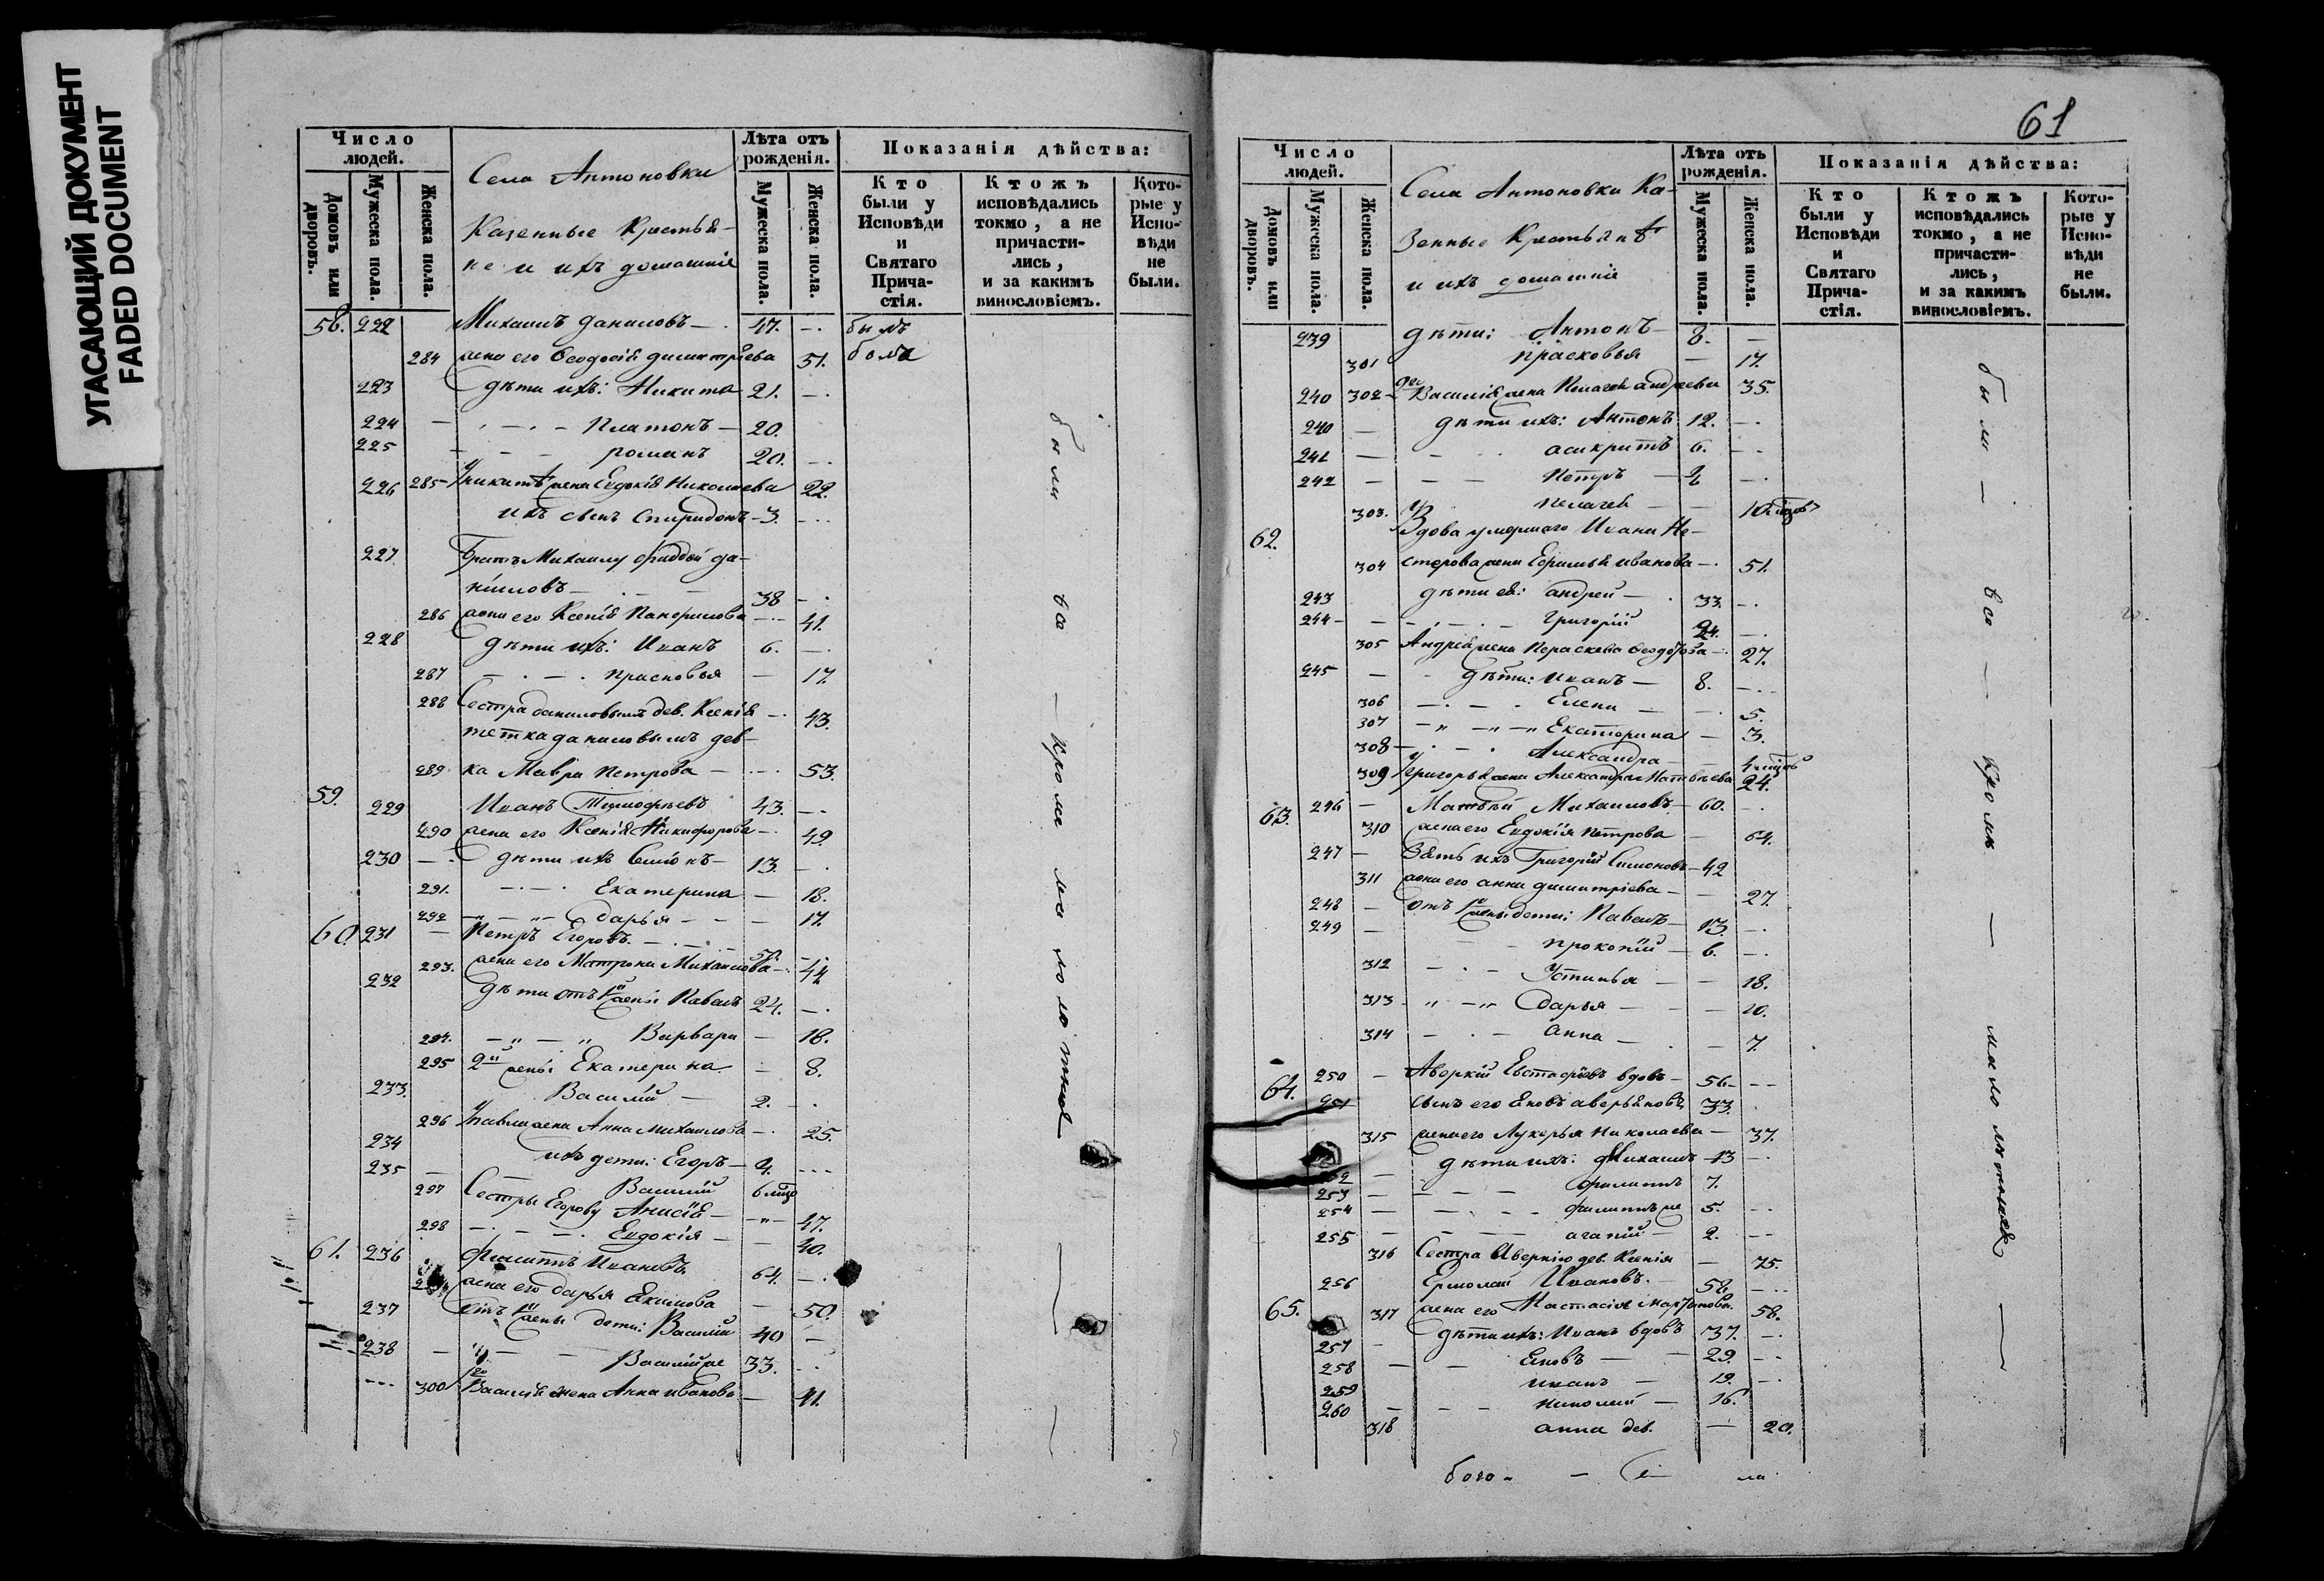 УГАСАЮЩИЙ ДОКУМЕНТ
FADED DOCUMENT
Число людей.
Домовъ или дворовъ.
Мужеска пола.
Женска пола.
Села Антоновки
Казенные Крестья-
не и ихъ домашніе
Лѣта отъ рожденія.
Мужеска пола.
Женска пола.
Показанія дѣйства:
Кто были у Исповѣди и Святаго Прича-стія.
Ктожъ исповѣдались токмо, а не причасти-лись, и за какимъ винословіемъ.
Кото-рые у Испо-вѣди не были.
58. 222 Михаилъ даниловъ — 47. — былъ
284 жена его Ѳеодосія димитріева 51. была
223 дѣти ихъ: Никита 21. —
224 — Платонъ — 20.
225 — романъ 20. —
226 285 Никиты жена Евдокія Николаева 22.
ихъ сынъ Спиридонъ — 3. —
227 Братъ Михаилу Фаддей да-
ниловъ — 38 —
286 жена его Ксенія Панфилова — 41.
228 дѣти ихъ: Иванъ 6. —
287 — Прасковья — 17.
288 Сестра даниловымъ дев. Ксенія — 43.
тетка даниловымъ дев-
289 ка Мавра Петрова — 53.
59. 229 Иванъ Тимофѣевъ 43. —
290 жена его Ксенія Никифорова — 49.
230 — дѣти ихъ Симіонъ — 13. —
291. — Екатерина — 18.
292 — дарья — 17.
60. 231 — Петръ Егоровъ — 50. —
293. жена его Матрона Михаилова — 44
232 дѣти отъ 1й жены Павелъ 24. —
294. — Варвара — 18.
295 2й жены Екатерина — 8.
233. Василій — 2. —
296 Павла жена Анна Михаилова — 25.
234 ихъ дети: Егоръ — 4. —
235 — Василій 6 мѣс
297 Сестры Егорову Анисія — 47.
298 — Евдокія — 40.
61. 236 Филиппъ Ивановъ 64. —
жена его дарья Екимова — 50.
237 отъ 1й жены дети: Василій 40 —
238 — Василій же 33. —
300 Василія жена Анна иванова — 41.
были всѣ — кроме малолѣтныхъ
61
Число людей.
Домовъ или дворовъ.
Мужеска пола.
Женска пола.
Села Антоновки Ка-
зенные Крестьянѣ
и ихъ домашніе
Лѣта отъ рожденія.
Мужеска пола.
Женска пола.
Показанія дѣйства:
Кто были у Исповѣди и Святаго Прича-стія.
Ктожъ исповѣдались токмо, а не причасти-лись, и за какимъ винословіемъ.
Кото-рые у Испо-вѣди не были.
239 дѣти: Антонъ — 8. —
301 прасковья — 17.
240 302 Василія жена Пелагея андреева 35.
240 — дѣти ихъ: Антонъ 12. —
241 — асикритъ 6. —
242 — Петръ — —
303. пелагея — 10 мѣсяцовъ
62. Вдова умершаго Ивана Не-
304 стерова жена Ефимья иванова — 51.
243 дѣти ея: андрей — 33. —
244 — Григорій 24. —
305 Андрея жена Параскева Ѳеодорова — 27.
245 — дѣти: иванъ — 8. —
306 — Елена — 5.
307 — Екатерина — 3.
308 — Александра — 4 мѣсяцовъ
309 Григорья жена Александра Матвѣева 24.
63. 246 — Матвѣй Михаиловъ — 60. —
310 жена его Евдокія Петрова — 64.
247 — Зять ихъ Григорій Симоновъ — 42
311 жена его анна димитріева — 27.
248 — отъ 1й жены дети: Павелъ — 13. —
249 — прокопій — 6. —
312 — Устинья — 18.
313 — дарья — 10.
314 — анна — 7.
64. 250 — Аверкій Евстафіевъ вдовъ — 56. —
251 сынъ его Яковъ аверьяновъ 33.
315 жена его Лукерья николаева — 37.
252 — дѣти ихъ: Михаилъ — 13 —
253 — филиппъ 7.
254 — филиппъ же 5. —
255 — агапій — 2. —
316 Сестра Аверкію дев. Ксенія — 75.
256 Ермолай Ивановъ. — 58. —
65. 317 жена его Настасія Мартинова. 58.
257 — дѣти ихъ: Иванъ вдовъ 37. —
258 — Яковъ — 29. —
259 иванъ — 19. —
260 — николай — 16.
318 анна дев. — 20.
были — всѣ — кромѣ — малолѣтныхъ